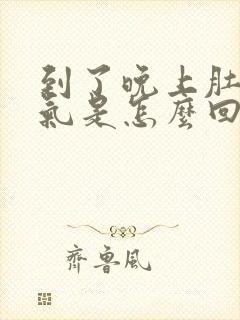 到了晚上肚
氣是怎麼回
齊魯風